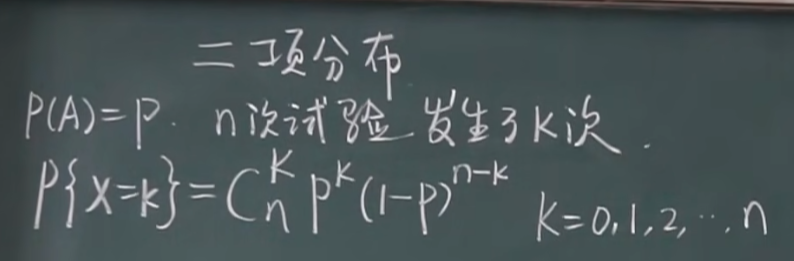 二项分布
P(A)=p. n次试验 发生了k次.
P{X=k}=Cₙᵏ pᵏ (1-p)ⁿ⁻ᵏ k=0,1,2,…,n